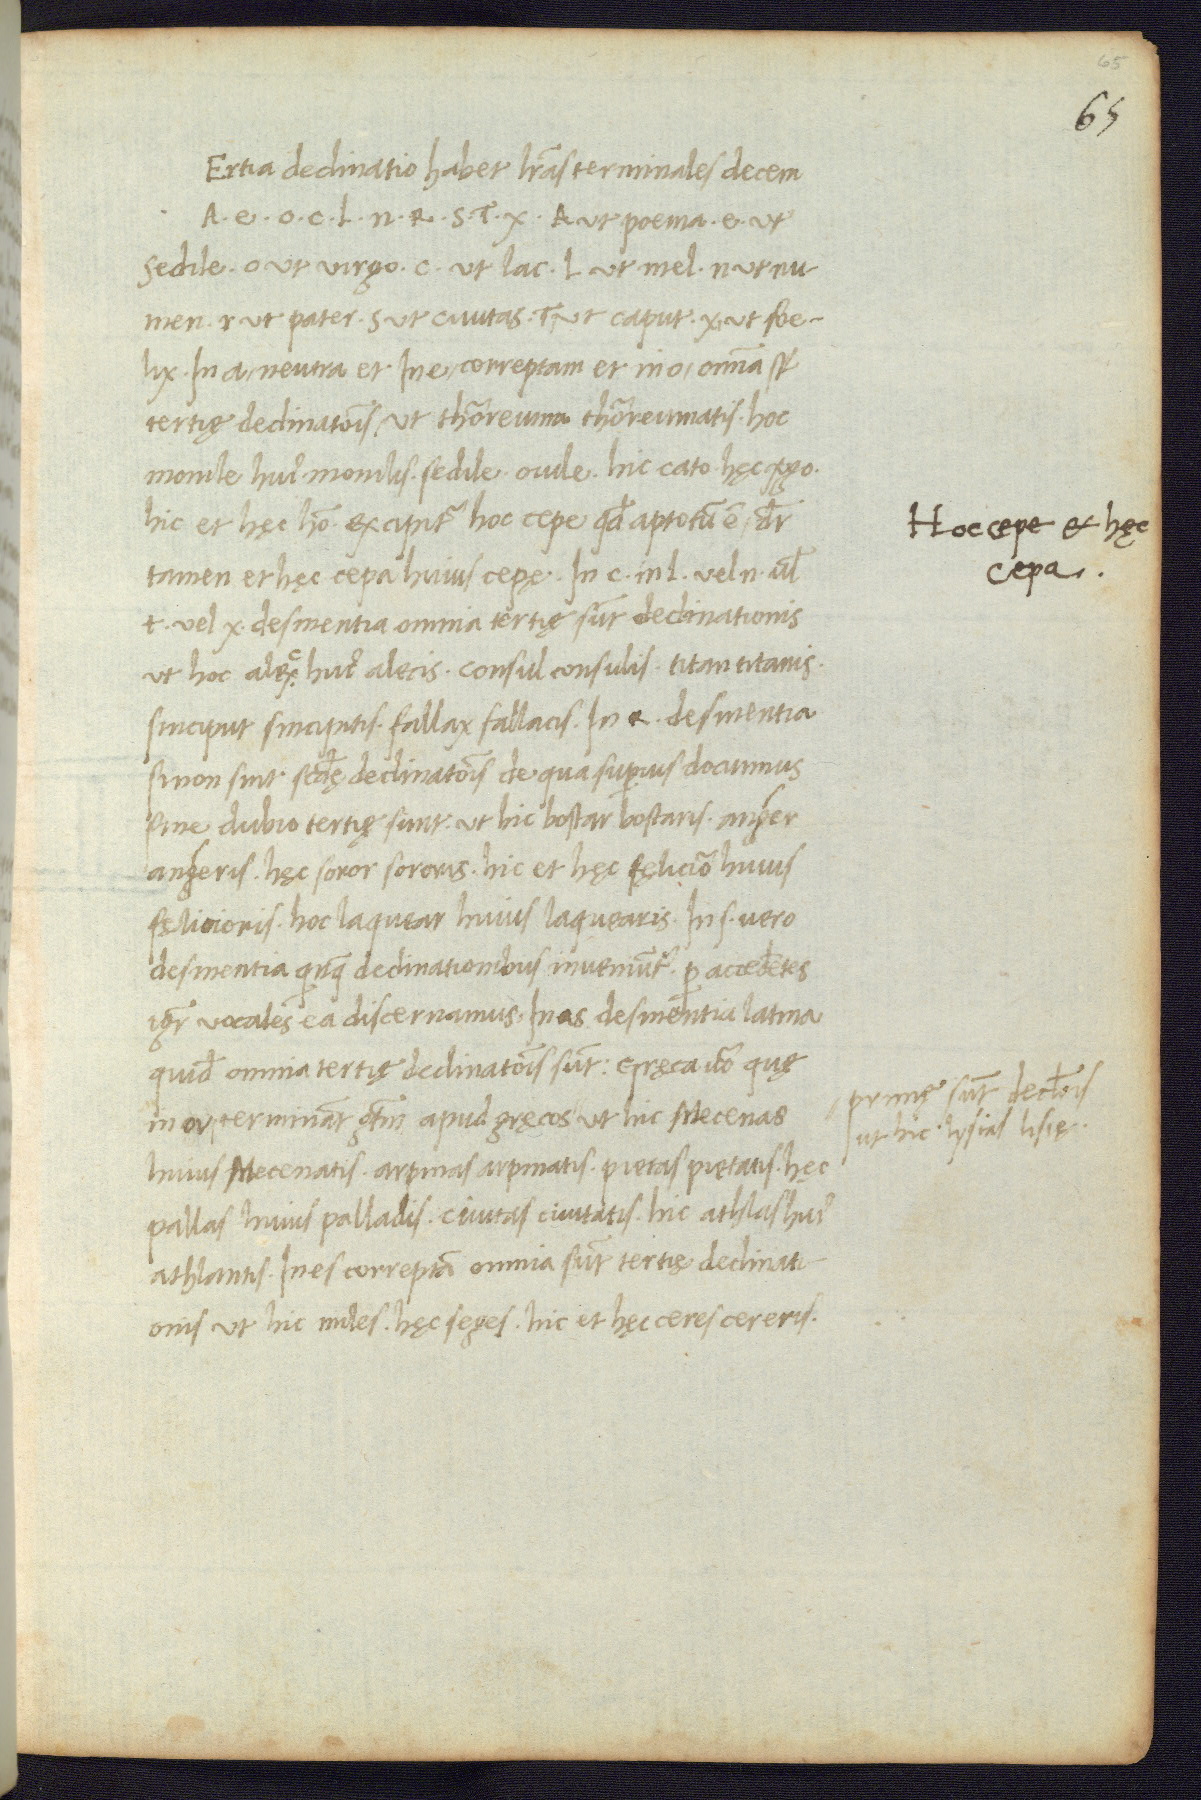 65
65
Ertia declinatio habet lr̃as terminales decem
A. e. o. c. L. n. R. S. T. X. A ut poema. e. ut
Sedile. o ut virgo. c. ut lac. L ut mel. n ut nu-
men. r ut pater. S ut ciuitas. T, ut caput. X, ut foe-
lix. In a, neutra et In e, correptam et in o, omnia st̃
tertię declinatõis, ut thoreuma thoreumatis. hoc
monile hui9 monilis. sedile. ouile. hic cato. hęc v̾go.
hic et hęc hõ. excipitr̃ hoc cepe qd̃ aptotũ ẽ, dr̃
tamen et hęc cepa huius cepę. In c. in L. vel n. ul̃
t. vel x. desinentia omnia tertię sunt̃ declinationis
ut hoc alec hui9 alecis. consul consulis. titan titanis.
sinciput sincipitis. fallax fallacis. In R. desinentia
si non sint scd̃ę declinatõis de qua supius docuimus
sine dubio tertię sunt. ut hic bostar bostaris. anser
anseris. hęc soror sororis. hic et hęc fęlicior̃ huius
felicioris. hoc laquear huius laquearis. In s. uero
desinentia qnq̃ declinationibus inueniũt̃. p accedẽtes
igr̃ vocales ea discernamus. In as desinentia latina
quid̃ omnia tertię declinatõis sũt: Gręca uõ quę
in ou, terminãt gt̃m apud gręcos ut hic Mecenas
huius Mecenatis. arpinas arpinatis. pietas pietatis. hęc
pallas huius palladis. ciuitas ciuitatis. hic athlas hui9
athlantis. In es correptã omnia sũt tertię declinati-
onis ut hic miles. hęc seges. hic et hęc ceres cereris.
Hoc cepe et hęc
cepa.
primę sũt decl̃ois
ut hic lysias lisię.